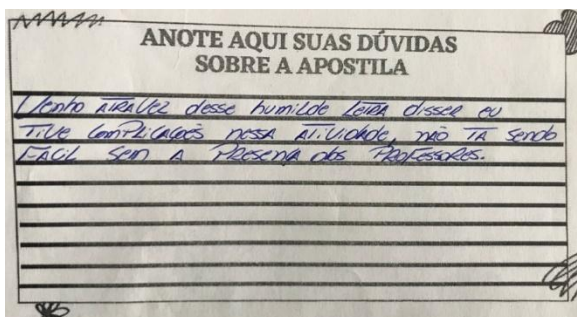 ANOTE AQUI SUAS DÚVIDAS
SOBRE A APOSTILA
Venho ATRAVEZ desse humilde LETRA disser eu
TIVE COMPLICAÇOẼS nessA ATIVIDADE, não TA sendo
FACIL Sem A PRESENÇA dos PROFESSORES.